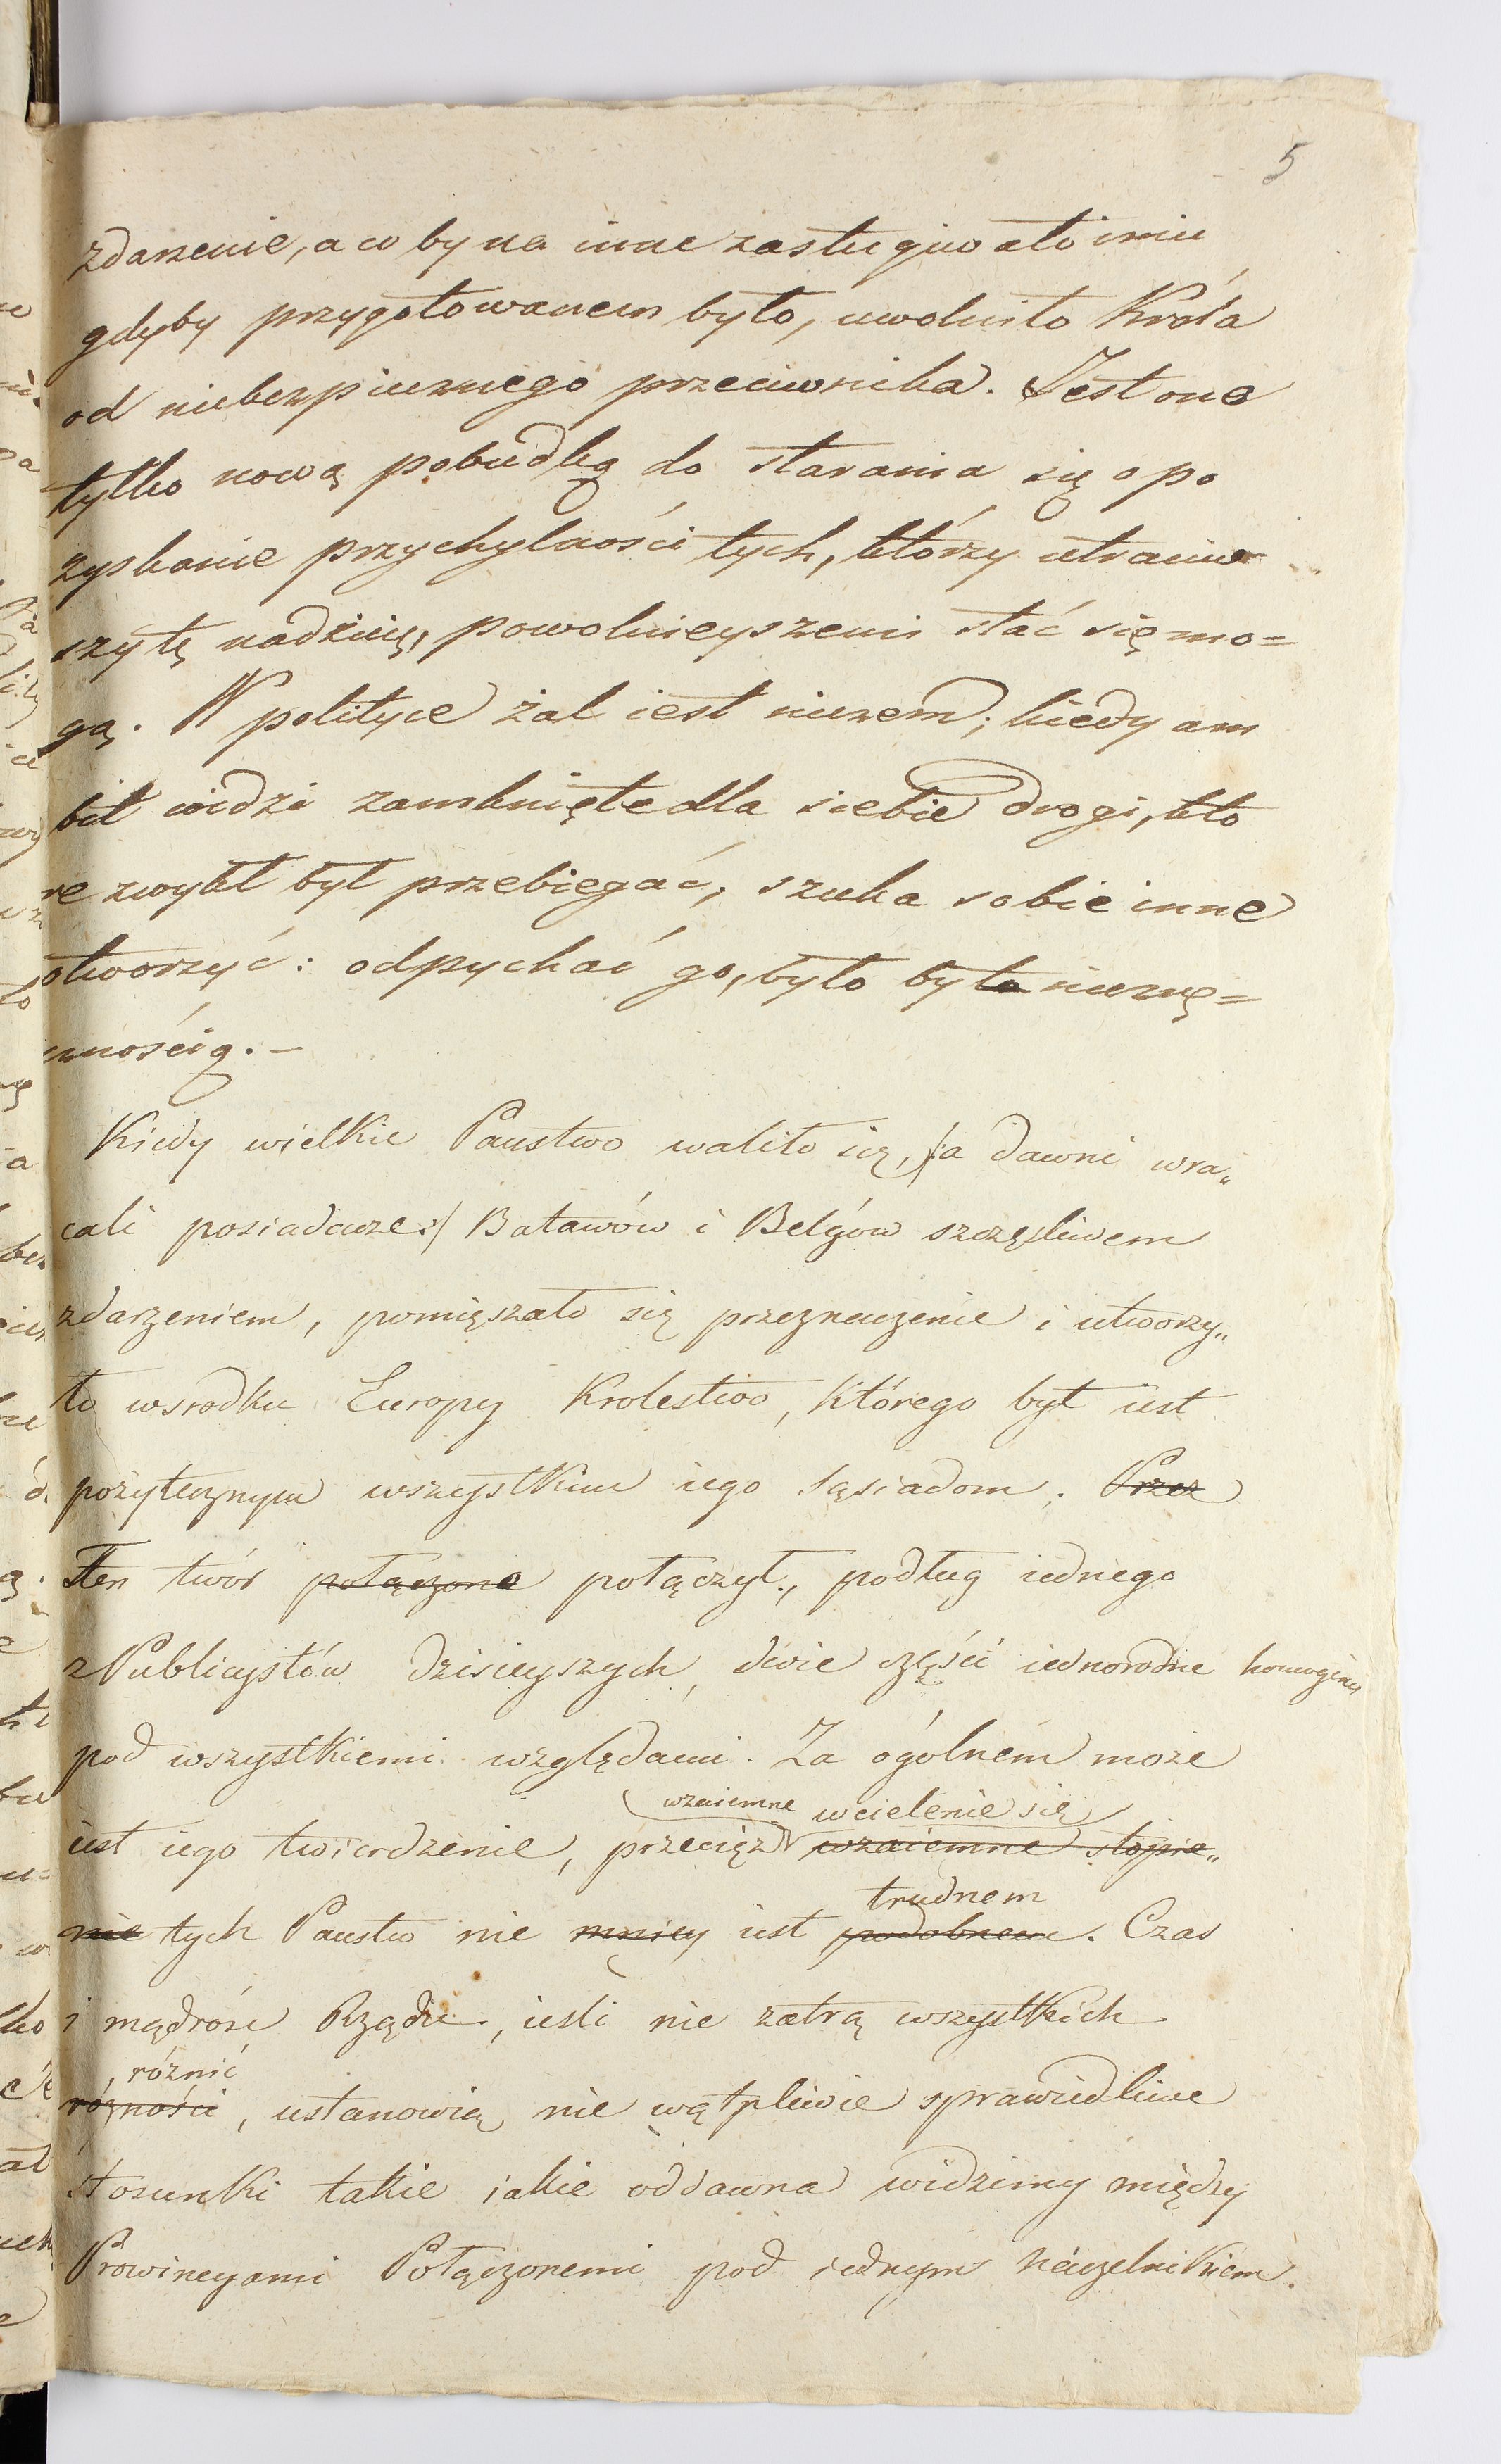 5
zdarzenie, a co by na inne zasługiwało imie
gdyby przygotowanem było, uwolniło Króla
od niebezpiecznego przeciwnika. Jest one
tylko nową pobudką do starania się o po
zyskanie przychylności tych, którzy utraciw
szy tę nadzieię, powolnieyszemi stać się mo=
gą. W polityce żal iest niczem; kiedy am
bit widzi zamknięte dla siebie drogi, któ
re zwykł był przebiegać, szuka sobie inne
otworzyć: odpychać go, było było niezrę=
cznością.-
Kiedy wielkie Panstwo waliło się, /:a dawni wra„
cali posiadacze:/ Batawów i Belgów szczęsliwem
zdarzeniem, pomięszało się przeznaczenie i utworzy„
ło wsrodku Europy Krolestwo, którego był iest
pożytecznym wszystkim iego sąsiadom. Przez
Ten twór połączone połączył, podług iednego
z Publicystów dzisieyszych, dwie części iednorodne
pod wszystkiemi względami. Za ogólnem może
wzaiemne wcielenie się
iest iego twierdzenie, przecięż wzaiemne stopie„
trudnem
nie tych Panstw nie mniey iest podobnem. Czas
i mądrość Rządu, iesli nie zatrą wszystkich
różnić
różności, ustanowią nie wątpliwie sprawiedliwe
stosunki takie iakie oddawna widzimy między
Prowincyami Połączonemi pod iednym naczelnikiem.